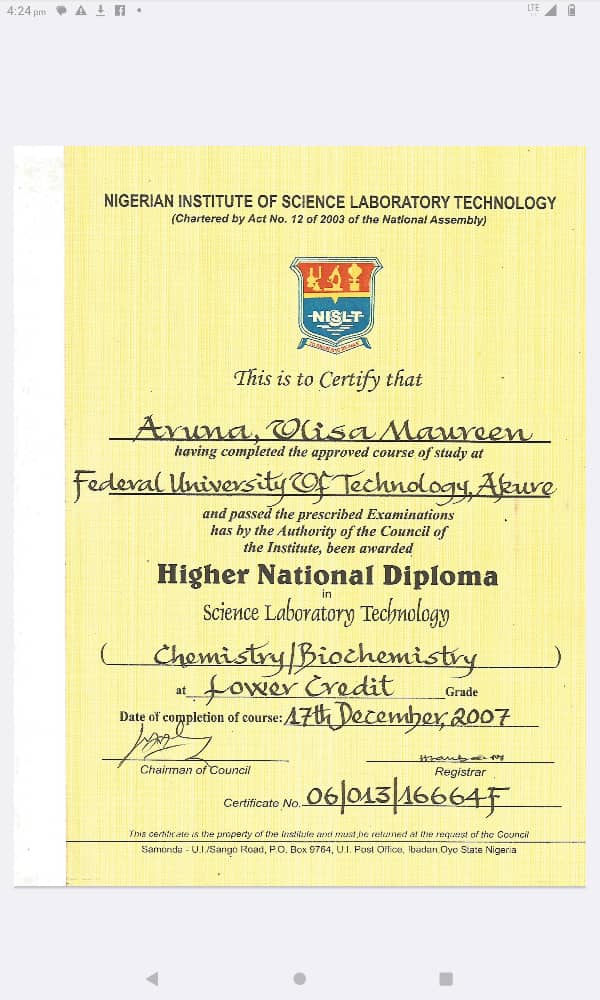 4:24 pm
LTE
NIGERIAN INSTITUTE OF SCIENCE LABORATORY TECHNOLOGY
(Chartered by Act No. 12 of 2003 of the National Assembly)
NISLT
This is to Certify that
Aruna, Olisa Maureen
having completed the approved course of study at
Federal University Of Technology, Akure
and passed the prescribed Examinations
has by the Authority of the Council of
the Institute, been awarded
Higher National Diploma
in
Science Laboratory Technology
( Chemistry/Biochemistry )
at Lower Credit Grade
Date of completion of course: 17th December, 2007
Chairman of Council
Registrar
Certificate No. 06/013/16664F
This certificate is the property of the Institute and must be returned at the request of the Council
Samonda - U.I./Sango Road, P.O. Box 9764, U.I. Post Office, Ibadan Oyo State Nigeria